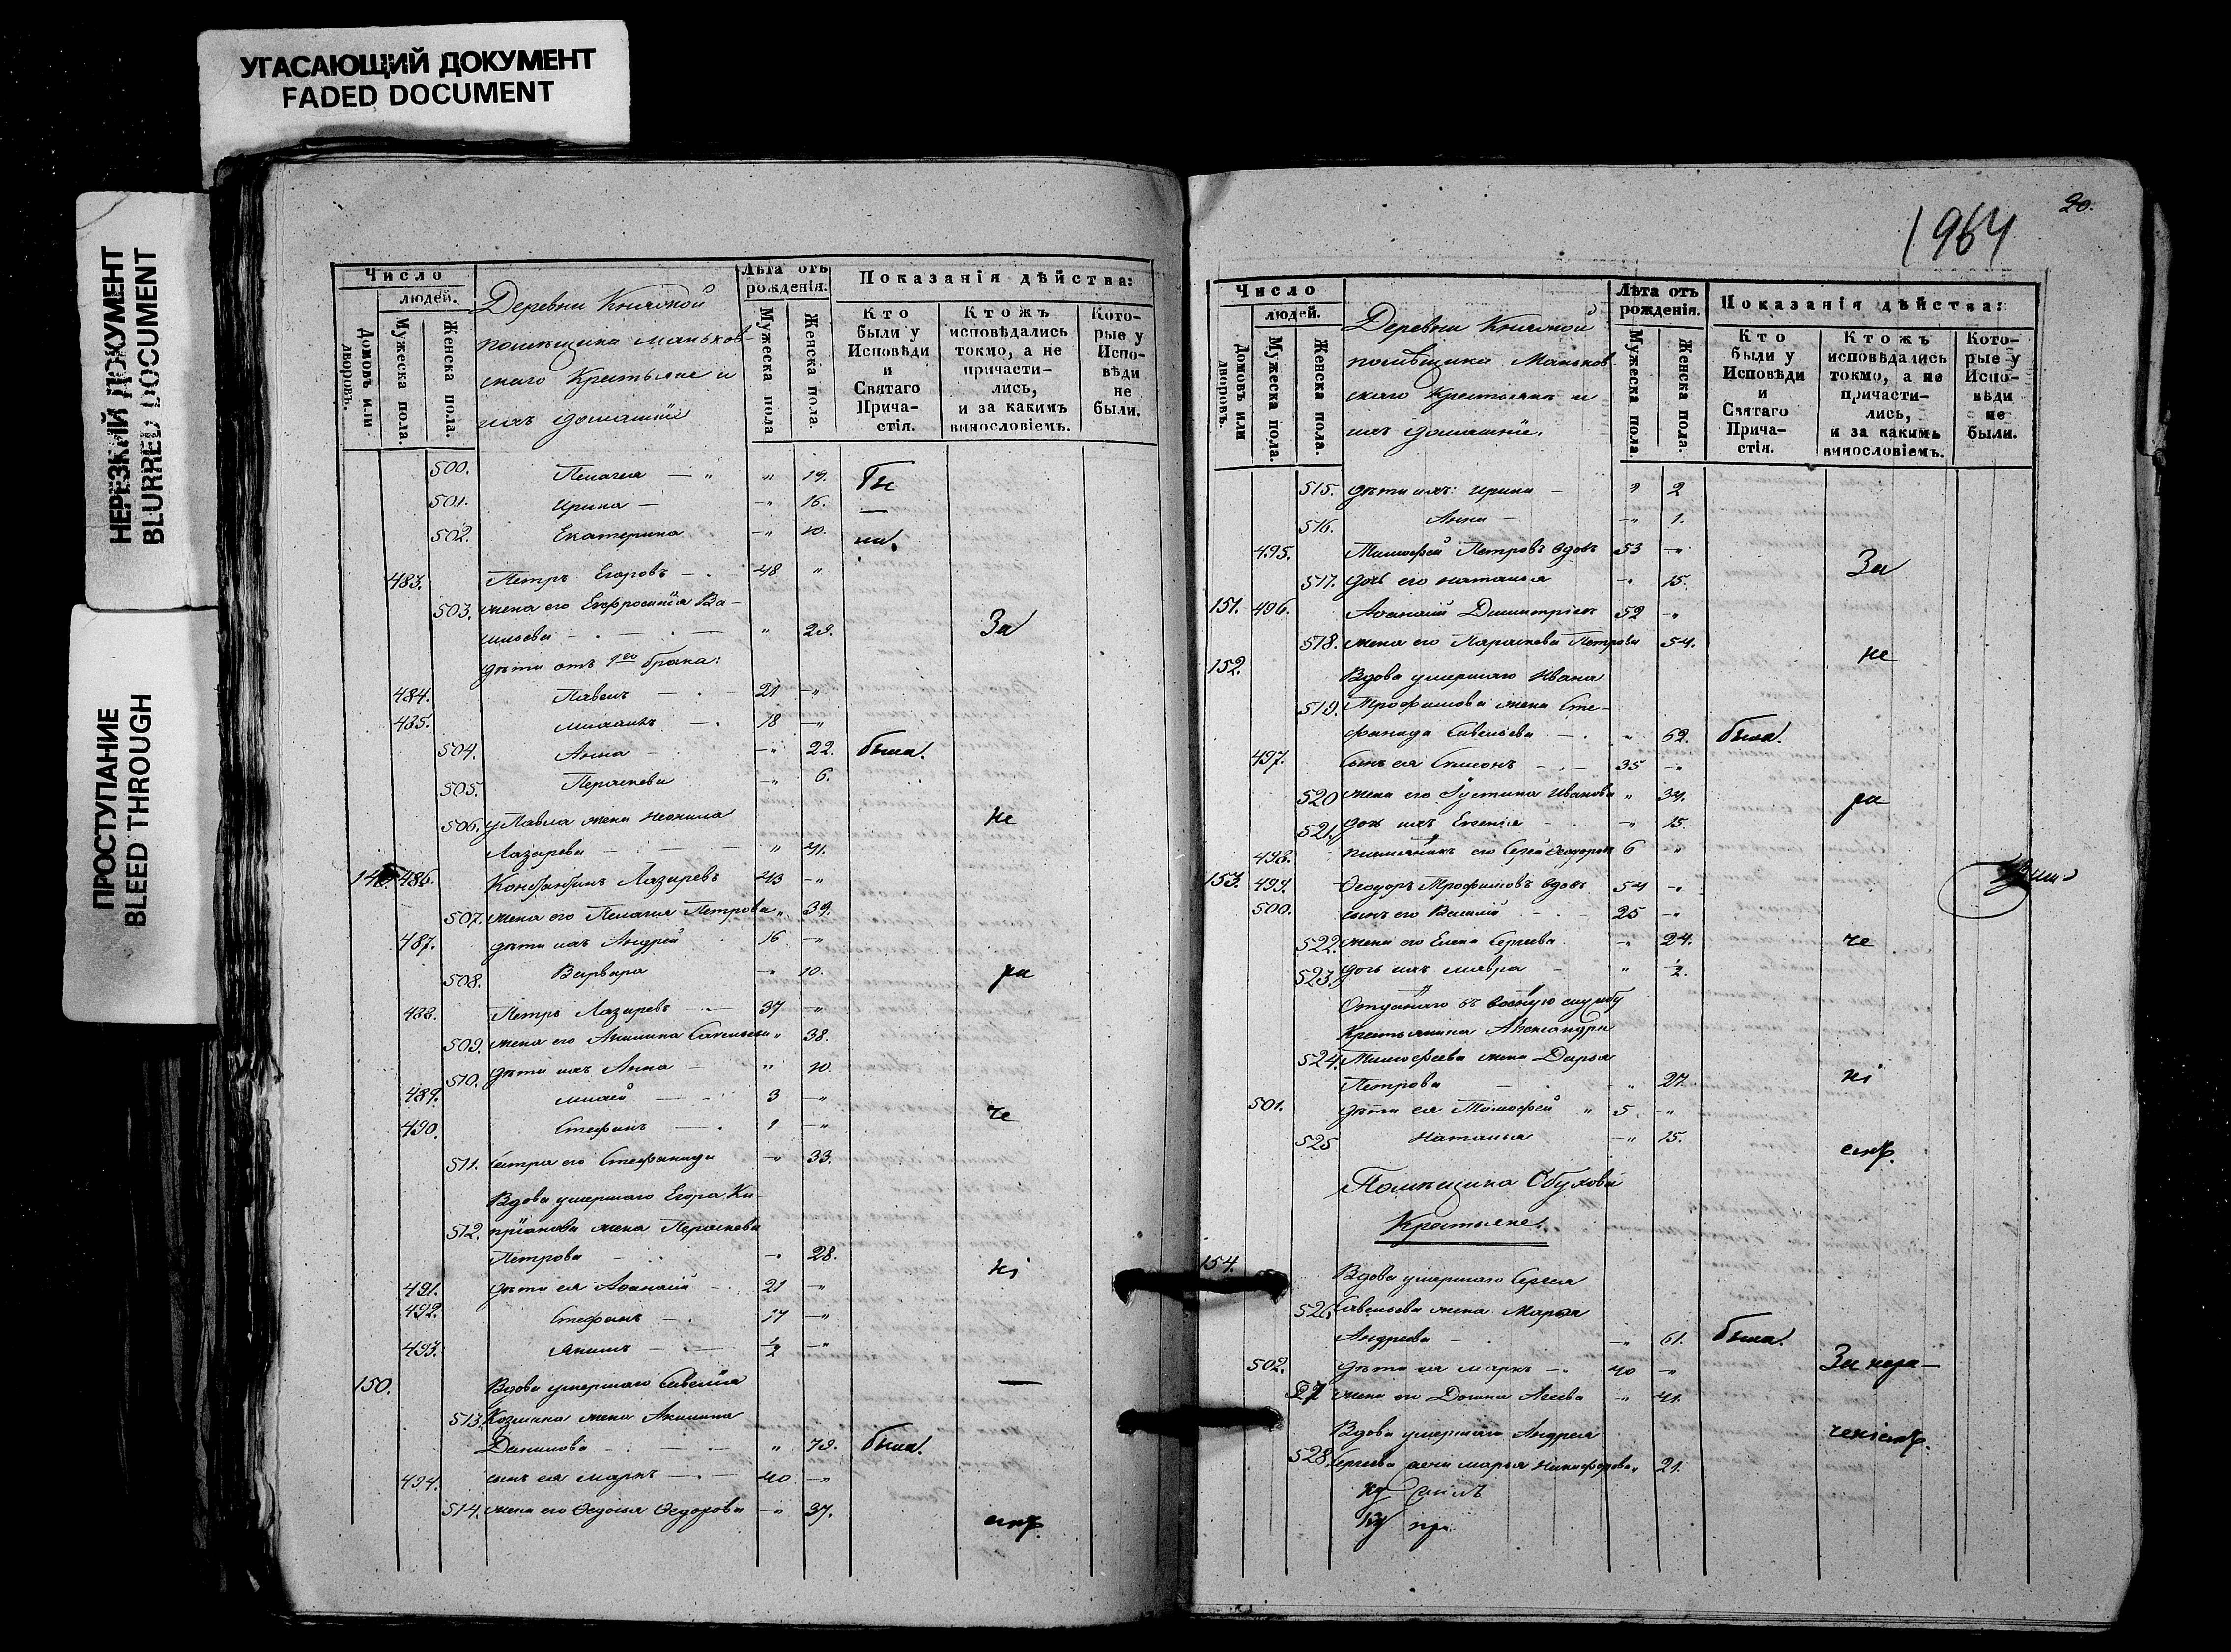 УГАСАЮЩИЙ ДОКУМЕНТ
FADED DOCUMENT
НЕРЕЗКИЙ ДОКУМЕНТ
BLURRED DOCUMENT
ПРОСТУПАНИЕ
BLEED THROUGH
Число
людей.
Домовъ или дворовъ.
Мужеска пола.
Женска пола.
Деревни Княжной
помѣщика Маньков-
скаго Крестьяне и
ихъ домашніе
Лѣта отъ рожденія.
Мужеска пола
Женска пола.
Показанія дѣйства:
Кто были у Исповѣди и Святаго Прича-стія.
Ктожъ исповѣдались токмо, а не причасти-лись, и за какимъ винословіемъ.
Кото-рые у Испо-вѣди не были.
500. Пелагея — " " 19. Бы
501. Ирина — —" 16. —
502. Екатерина —" 10. ли.
483. Петръ Егоровъ — 48 "
503. жена его Евфросинія Ва-
сильева — " 29. За
дѣти отъ 1го брака:
484. Павелъ — 21 —"
485. Михаилъ — 18 —"
504. Анна — —" 22. была.
505. Параскева —" 6.
506. у Павла жена Неонила не
Лазарева — "
486. Константинъ Лазаревъ 43 —"
507. жена его Пелагія Петрова " 39.
487. дѣти ихъ Андрей — 16 —"
508. Варвара —" 10. ра
488. Петръ Лазаревъ — 37 —"
509. жена его Акилина Савельева " 38.
510. дѣти ихъ Анна — " 10.
489. 3 —"
490. Стефанъ — 1 —" че
511. сестра его Стефанида —" 33.
Вдова умершаго Егора Ки-
512. пріанова жена Параскева
Петрова — —" 28.
491. дѣти ея Аѳанасій — 21 —" ні
492. Стефанъ — 17 —"
493. Якимъ — ½ —"
150. Вдова умершаго Савелія —
513. Козмина жена Акилина
Данилова — " 79. была.
494. сынъ ея Маркъ — 40 —"
514. жена его Ѳедосья Ѳедорова —" 37. емъ.
1964
20.
Число
людей.
Домовъ или дворовъ.
Мужеска пола.
Женска пола.
Деревни Княжной
помѣщика Маньков
скаго Крестьяне и
ихъ домашніе.
Лѣта отъ рожденія.
Мужеска пола.
Женска пола.
Показанія дѣйства:
Кто были у Исповѣди и Святаго Прича-стія.
Ктожъ исповѣдались токмо, а не причасти-лись, и за какимъ винословіемъ.
Кото-рые у Испо-вѣди не были.
515. дѣти ихъ: Ирина — " 2
516. Анна — —" 1.
495. Тимофей Петровъ вдовъ 53 —" За
517. дочь его Наталья —" 15.
151. 496. Аѳанасій Димитріевъ 52 —"
518. жена его Параскева Петрова 54. не
152. Вдова умершаго Ивана
519. Трофимова жена Сте-
фанида Савельева — " 62. была.
497. Сынъ ея Симеонъ — 35 —"
520 жена его Іустина Иванова " 34. ра
521. дочь ихъ Евгенія — —" 15.
498. племянникъ его Сергей Ѳедоровъ 6 "
153. 499. Ѳеодоръ Трофимовъ вдовъ 54 —"
500. сынъ его Василій — 25 —"
522. жена его Елена Сергеева —" 24. че
523. дочь ихъ Мавра — " ½.
Отданнаго въ военную службу
Крестьянина Александра
524. Тимофеева жена Дарья
Петрова — " 27. ні
501. дѣти ея Тимофей " 5. —"
525 Наталья —" 15. емъ.
Помѣщика Обухова
Крестьяне.
154. Вдова умершаго Сергея
526 Савельева жена Марѳа
Андреева — —" 61. была.
502. дѣти ея Маркъ — 40 —" За нера—
527 жена его Домна " 41.
Вдова умершаго Андрея ченіемъ.
528. Сергеева жена Марья Никифорова " 21.